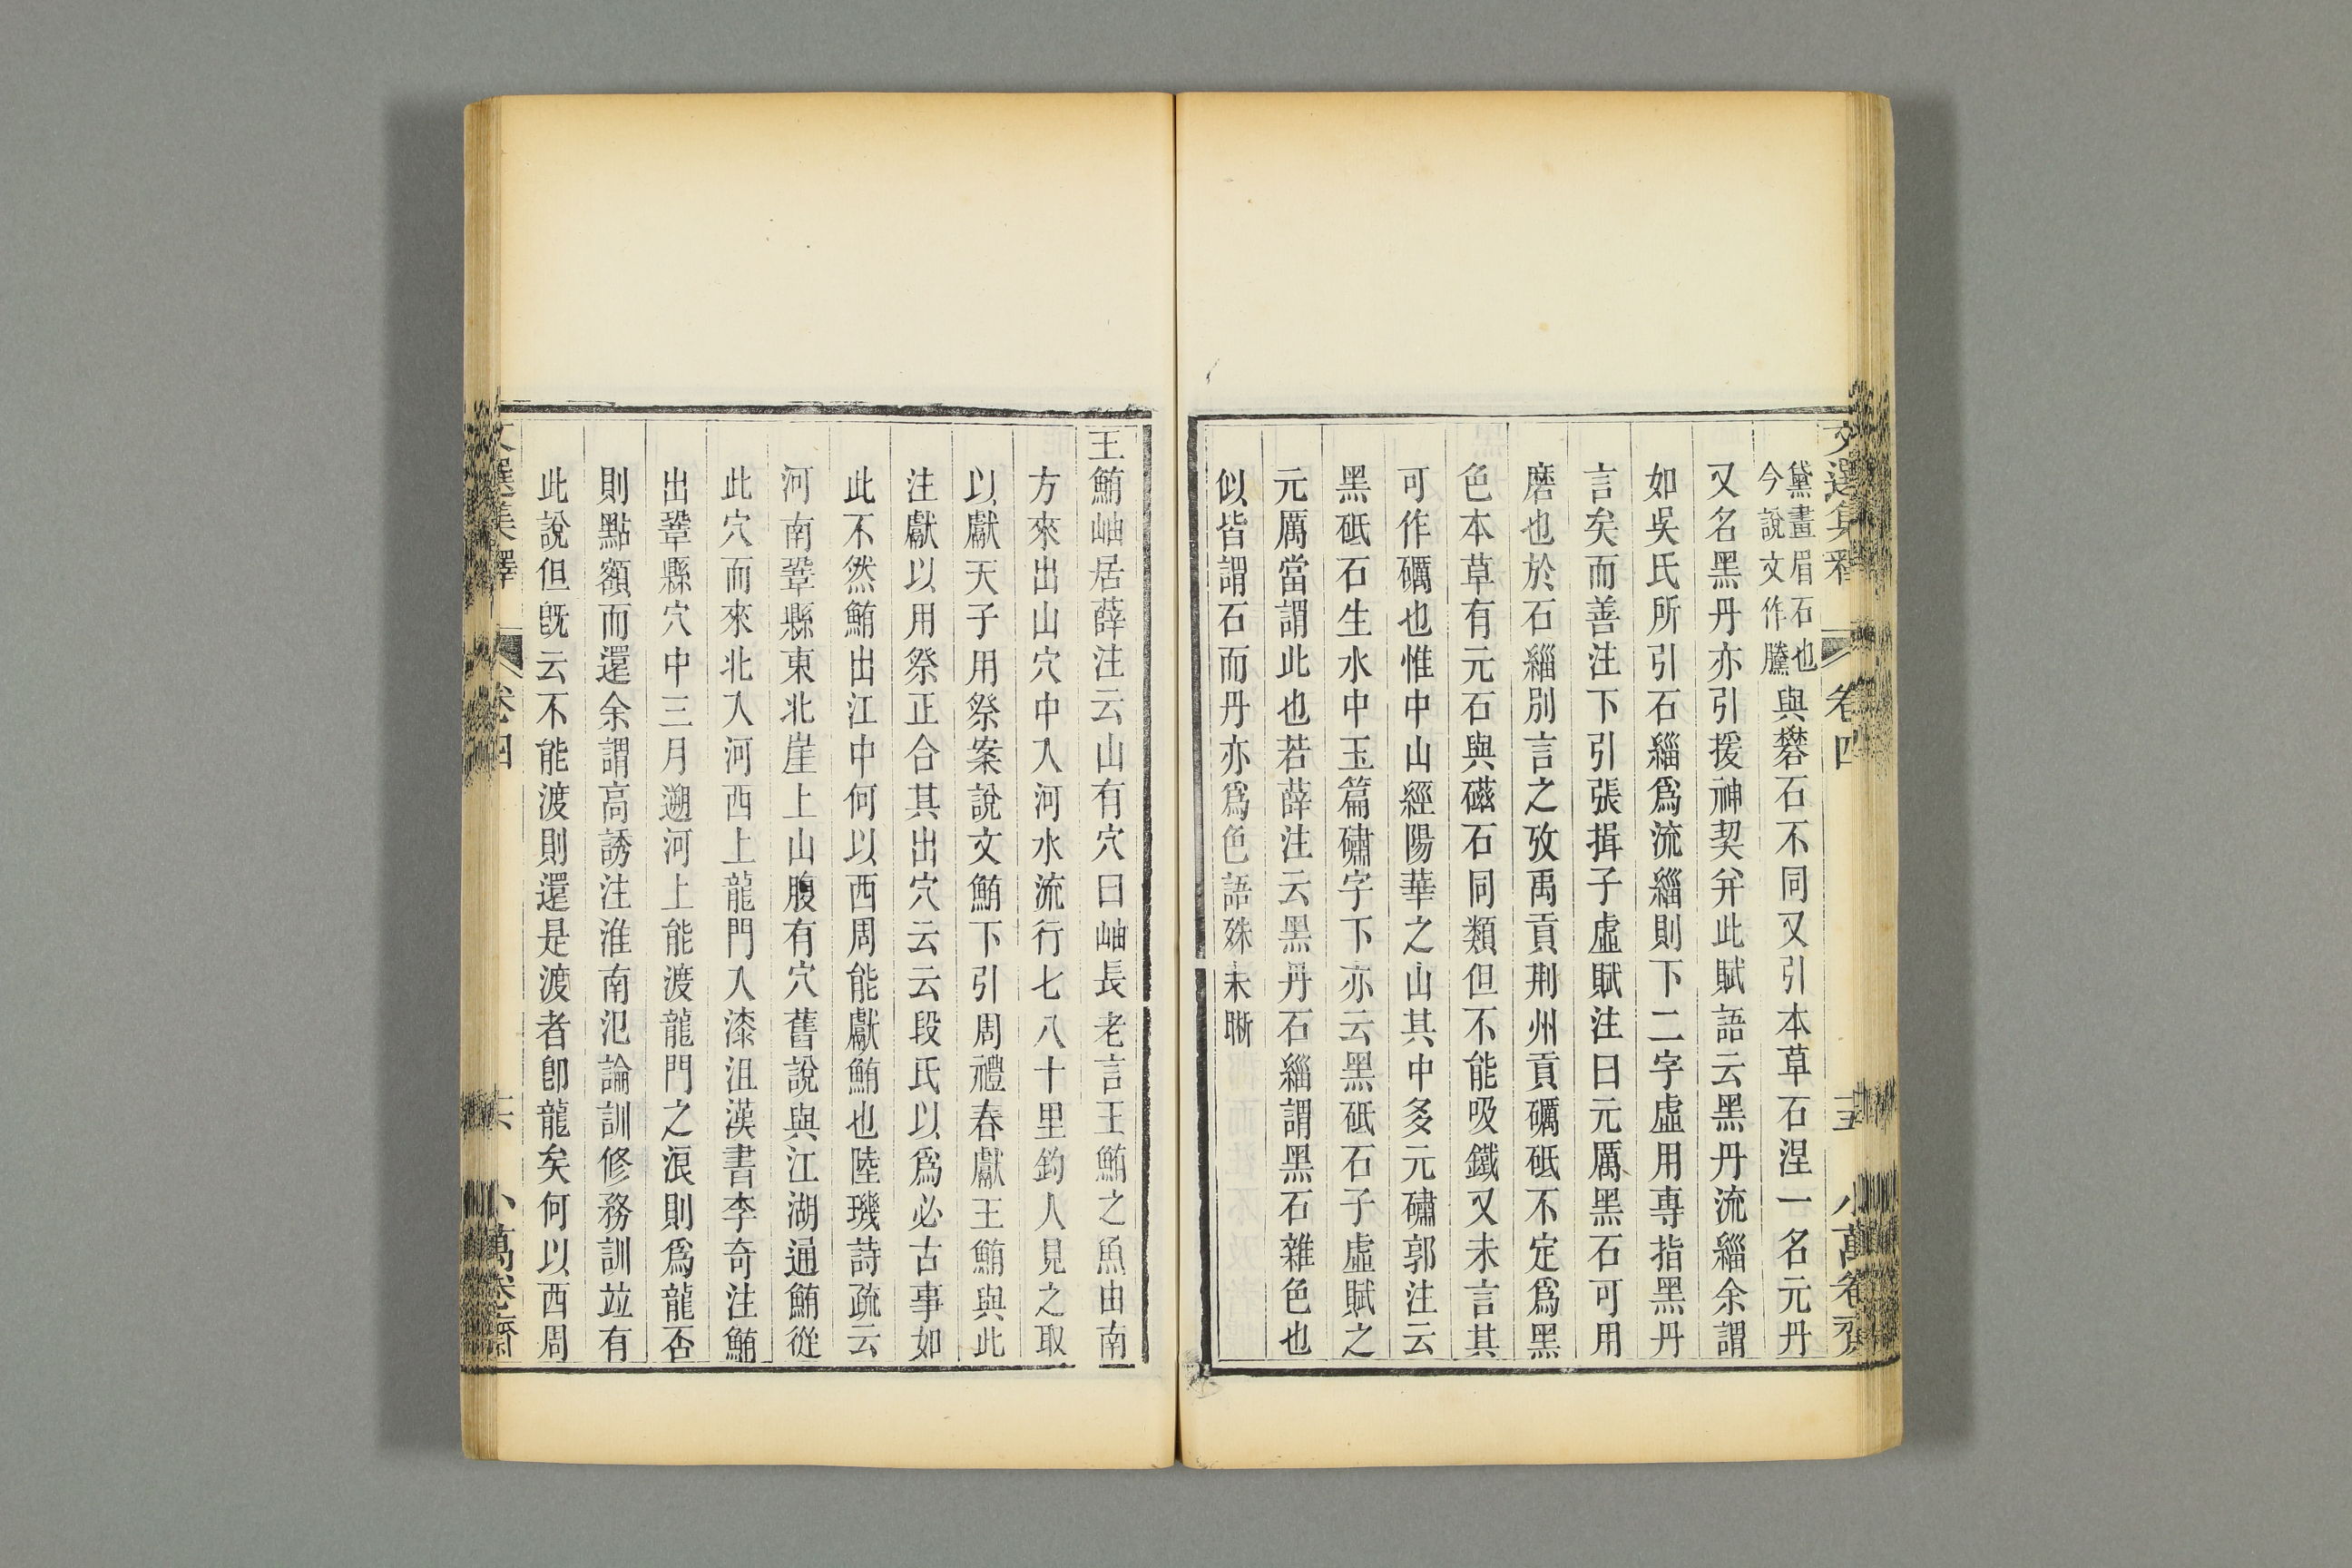 文選集釋 卷四 十五 小萬卷齋
黛畫眉石也
今說文作騰
與礬石不同又引本草石涅一名元丹
又名黑丹亦引援神契幷此賦語云黑丹流緇余謂
如吳氏所引石緇爲流緇則下二字虛用專指黑丹
言矣而善注下引張揖子虛賦注曰元厲黑石可用
磨也於石緇別言之攷禹貢荆州貢礪砥不定爲黑
色本草有元石與磁石同類但不能吸鐵又未言其
可作礪也惟中山經陽華之山其中多元䃤郭注云
黑砥石生水中玉篇䃤字下亦云黑砥石子虛賦之
元厲當謂此也若薛注云黑丹石緇謂黑石雜色也
似皆謂石而丹亦爲色語殊未晰
王鮪岫居薛注云山有穴曰岫長老言王鮪之魚由南
方來出山穴中入河水流行七八十里釣人見之取
以獻天子用祭案說文鮪下引周禮春獻王鮪與此
注獻以用祭正合其出穴云云段氏以爲必古事如
此不然鮪出江中何以西周能獻鮪也陸璣詩疏云
河南鞏縣東北崖上山腹有穴舊說與江湖通鮪從
此穴而來北入河西上龍門入漆沮漢書李奇注鮪
出鞏縣穴中三月遡河上能渡龍門之浪則爲龍否
則點額而還余謂高誘注淮南氾論訓修務訓竝有
此說但旣云不能渡則還是渡者卽龍矣何以西周
文選集釋 卷四 十六 小萬卷齋